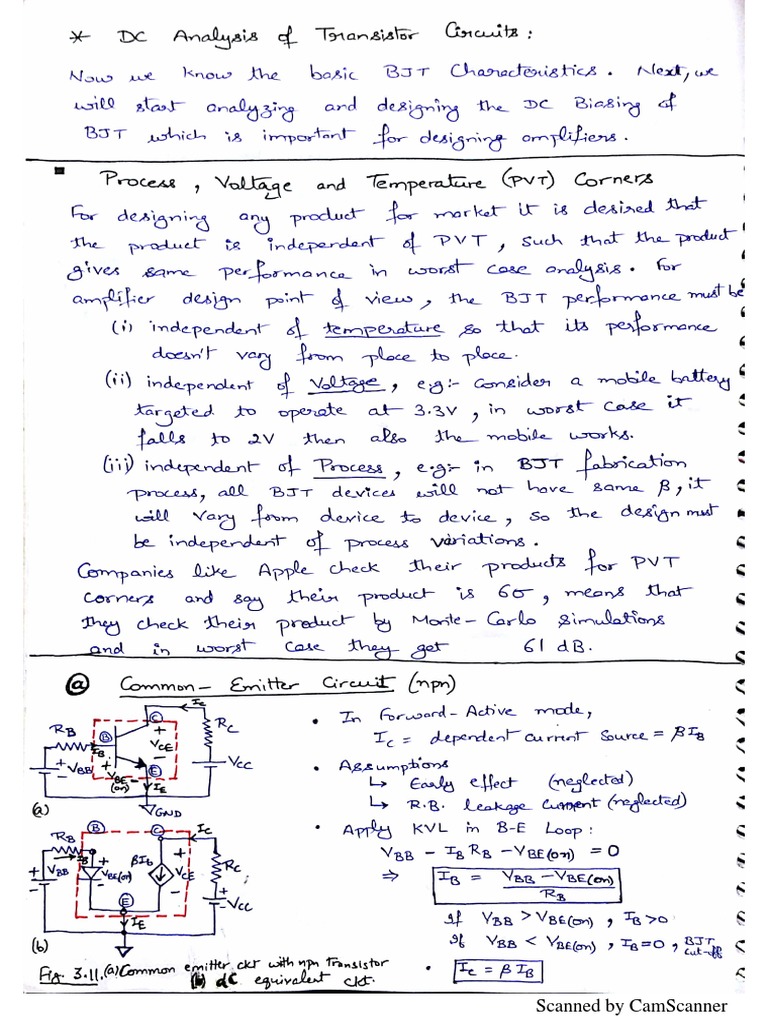 * DC Analysis of Transistor Circuits:
Now we know the basic BJT Characteristics. Next, we
will start analyzing and designing the DC Biasing of
BJT which is important for designing amplifiers.
Process, Voltage and Temperature (PVT) Corners
For designing any product for market it is desired that
the product is independent of PVT, such that the product
gives same performance in worst case analysis. For
amplifier design point of view, the BJT performance must be
(i) independent of temperature so that its performance
doesn't vary from place to place.
(ii) independent of Voltage, e.g:- consider a mobile battery
targeted to operate at 3.3V, in worst case it
falls to 2V then also the mobile works.
(iii) independent of Process, e.g:- in BJT fabrication
process, all BJT devices will not have same β, it
will vary from device to device, so the design must
be independent of process variations.
Companies like Apple check their products for PVT
corners and say their product is 6σ, means that
they check their product by Monte-Carlo simulations
and in worst case they get 61 dB.
(a) Common-Emitter Circuit (npn)
RB
B
IB
VBB
+
-
C
VCE
+
-
VBE(on)
+
-
E
IE
IC
RC
VCC
GND
(a)
• In Forward-Active mode,
IC = dependent current source = βIB
• Assumptions
↳ Early effect (neglected)
↳ R.B. leakage current (neglected)
• Apply KVL in B-E Loop:
VBB - IB RB - VBE(on) = 0
⇒ IB = VBB - VBE(on)
RB
if VBB > VBE(on), IB>0
if VBB < VBE(on), IB=0, BJT
cut-off
• IC = β IB
RB
B
IB
VBB
+
-
VBE(on)
βIb
C
VCE
+
-
E
IE
IC
RC
VCC
+
-
(b)
Fig. 3.11. (a) Common emitter ckt with npn Transistor
(b) dC equivalent ckt.
Scanned by CamScanner